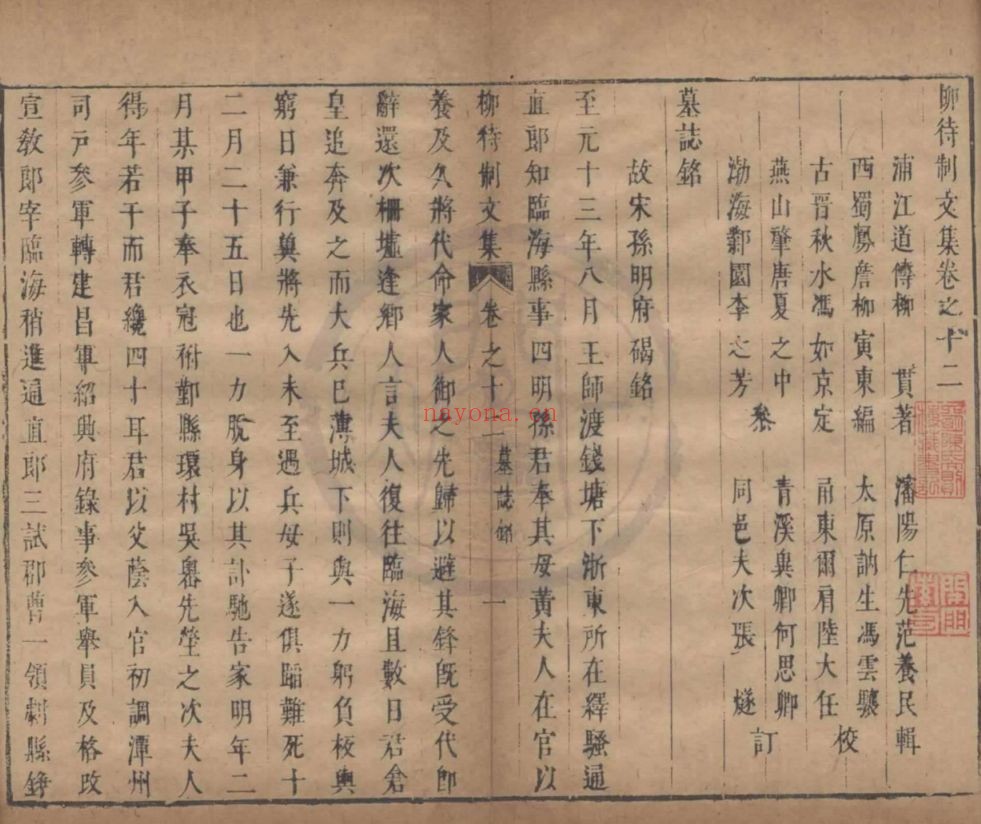 柳待制文集卷之十二
浦江道傳柳　貫著　瀋陽仁先范養民輯
西蜀鳳詹柳寅東編　太原訥生馮雲驤
古晉秋水馮如京定　甬東爾肩陸大任　校
燕山肇唐夏之中　青溪與卿何思卿
渤海鄴園李之芳　叅　同邑夫次張　燧　訂
墓誌銘
故宋孫明府碣銘
至元十三年八月王師渡錢塘下浙東所在繹騷通
直郎知臨海縣事四明孫君奉其母黃夫人在官以
柳待制文集　卷之十二　墓誌銘　一
養及久將代命家人御之先歸以避其鋒旣受代卽
辭還次柵墟逢鄉人言夫人復往臨海且數日君倉
皇追奔及之而大兵已薄城下則與一力躬負板輿
窮日兼行冀將先入未至遇兵母子遂俱臨難死十
二月二十五日也一力脫身以其訃馳告家明年二
月某甲子奉衣冠祔鄞縣環村吳嶴先塋之次夫人
得年若干而君纔四十耳君以父蔭入官初調潭州
司戸參軍轉建昌軍紹興府錄事參軍舉員及格改
宣敎郎宰臨海稍進通直郎三試郡曹一領劇縣錚
nayona.cn